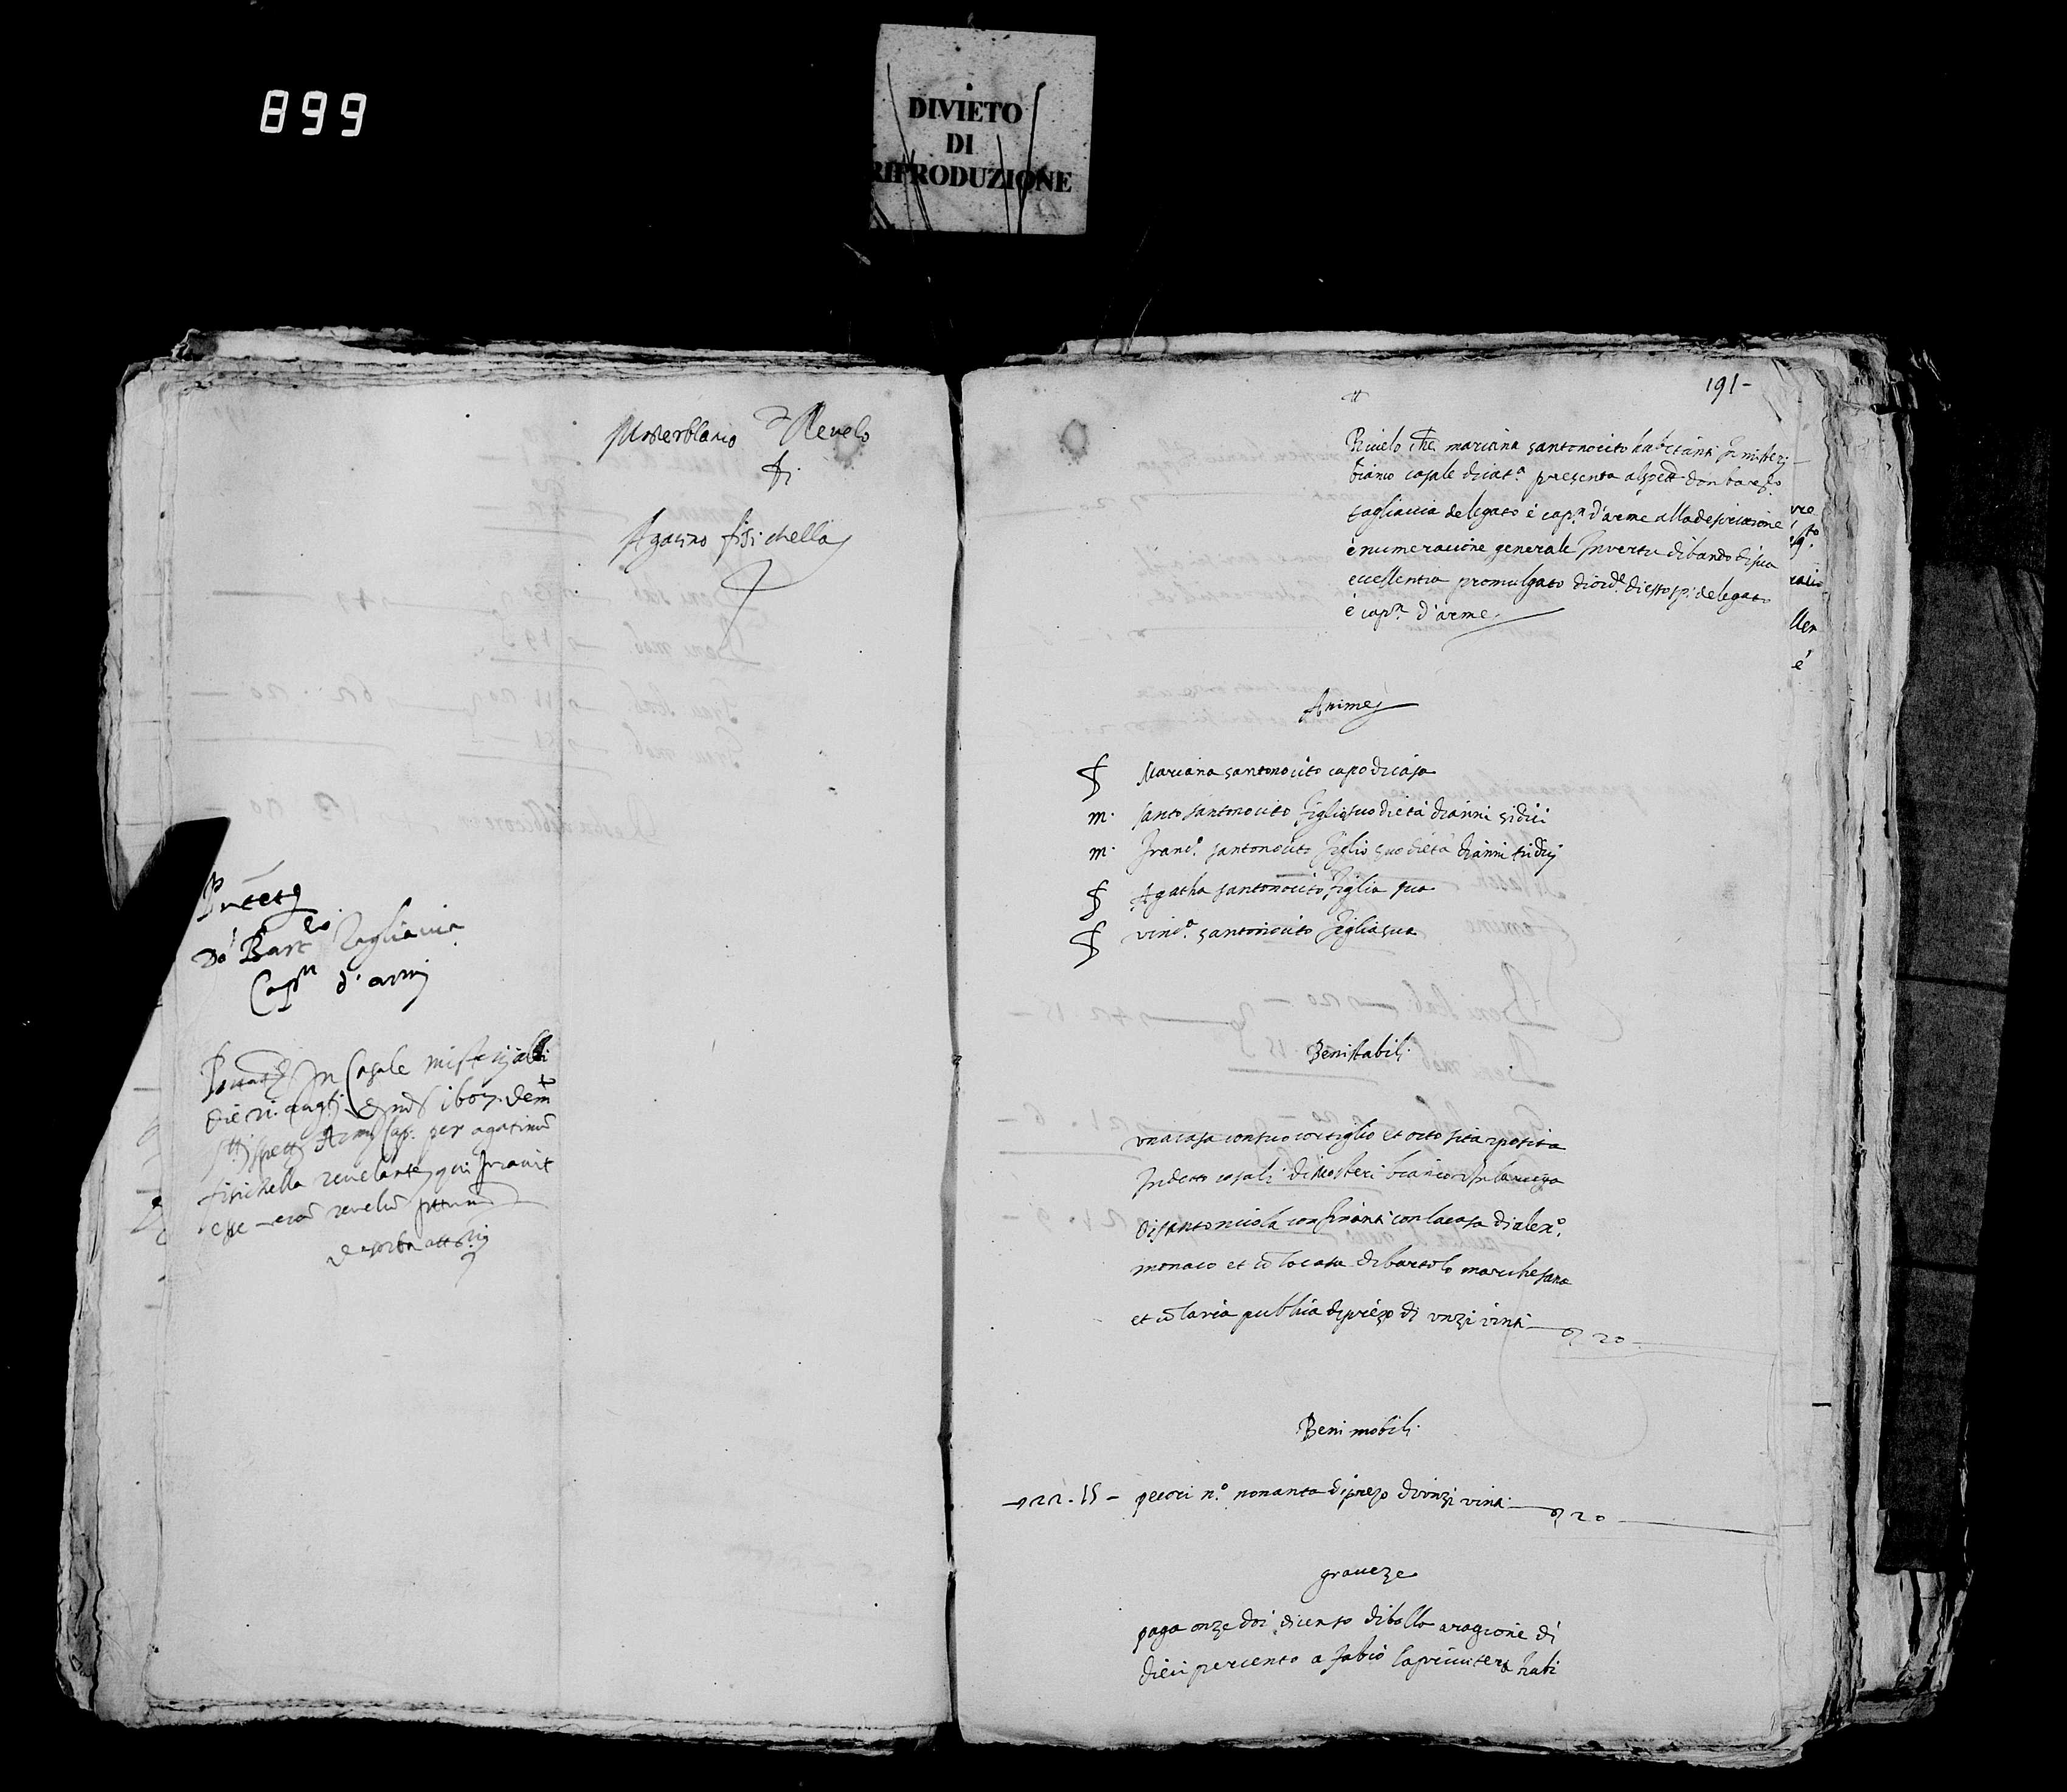 899
DIVIETO
DI
RIPRODUZIONE
Misterblanco Revelo
di
Agatino fisichella
Don Bart.eo Tagliavia
Cap.n d'armi
In Casale misterijalbi
die 21 augti 1607
per agatinu
fisichella revelante qui iuravit
esse revelu
191
Rivelo che mariana santonocito habitanti in misteri
bianco casale di cat.a presenta al spett. don bar.eo
tagliavia delegato è cap.n d'arme alla descricione
è numeracione generale in vertu di bando di sua
eccellentia promulgato di ord.e di esso sp. delegato
è cap.n d'arme
Anime
f Mariana santonocito capo di casa
m. santo santonocito figlio suo di età di anni sidici
m. franc.o santonocito figlio suo di età di anni tridici
f Agatha santonocito figlia sua
f vinc.a santonocito figlia sua
Beni stabili
una casa con suo cortiglio et orto sita et posita
in detto casali di Misteri bianco in la vigna
di santo nicola confinanti con la casa di
monaco et co la casa di bartolo marchesana
et co la via publica di prezo di unzi vinti 20
Beni mobili
22.15 pecori n.o nonanta di prezo di unzi vinti 20
graveze
paga onze doi di censo di bolla a ragione di
dieci per cento a fabio la habi